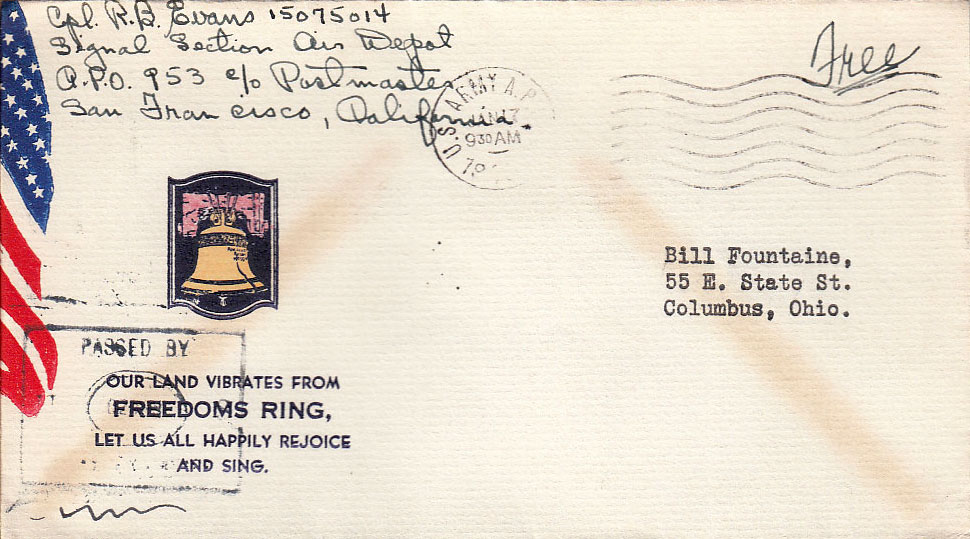 Cpl. R.B. Evans 15075014
Signal Section Air Depot
A.P.O. 953 c/o Postmaster
San Francisco, California.
Free
U.S. ARMY A.P.
930AM
Bill Fountaine,
55 E. State St.
Columbus, Ohio.
PASSED BY
OUR LAND VIBRATES FROM
FREEDOMS RING,
LET US ALL HAPPILY REJOICE
AND SING.